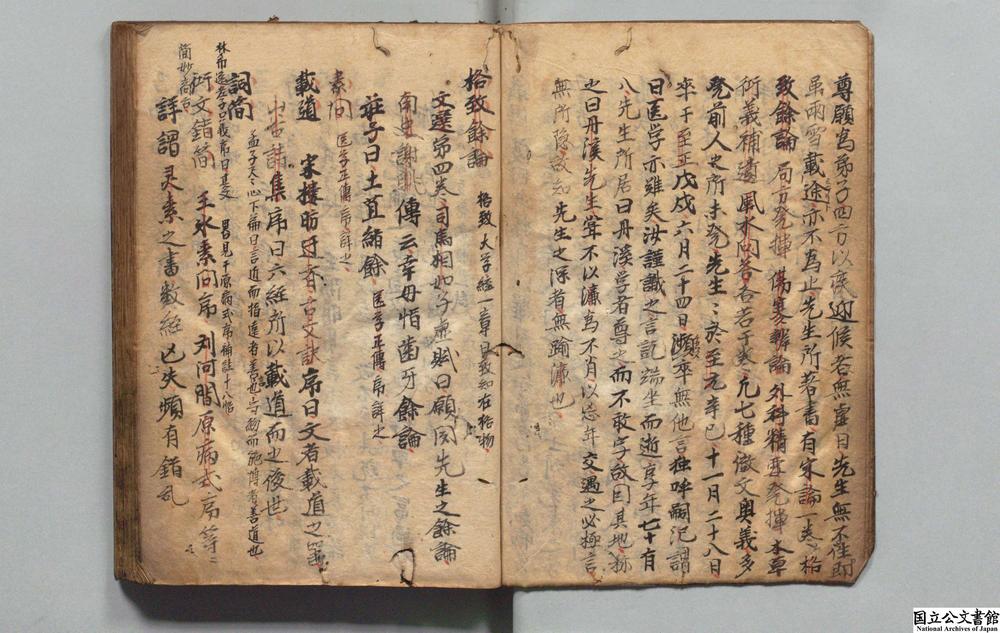 尊願爲弟子四方以疾迎候者無虚日先生無不往即
雖雨雪載途亦不爲止先生所著書有宋論一卷格
致餘論 局方発揮 傷寒辨論 外科精要発揮 本草
衍義補遺 風水問答 各若干卷凡七種微文奥義多
発前人之所未発先生生於至元辛巳十一月二十八日
卒于至正戊戌六月二十四日瀕卒無他言独呼嗣氾謂
曰医学亦難矣汝謹識之言訖端坐而逝享年七十有
八先生所居曰丹溪学者尊之而不敢字故因其地称
之曰丹溪先生甞不以濂爲不肖以忘年交遇之必極言
無所隠故知先生之深者無踰濂也
格致餘論 格致大学経一章曰致知在格物
文選第四卷司馬相如子虚賦曰願聞先生之餘論
南史謝朓傳云幸毋惜齒牙餘論
莊子曰土苴緒餘 医学正傳序評之
素問 医学正傳序評之
載道 宋樓昉迂斎古文訣序曰文者載道之噐
集序曰六経所以載道而之後世
詞简 孟子尽心下篇曰言近而指遠者善言也守約而施博者善道也
林希逸老子口義序曰
簡妙高古
衍文錯简 王氷素問序 刘河間原病式序等
詳謂灵素之書数経已失頗有錯乱
国立公文書館
National Archives of Japan